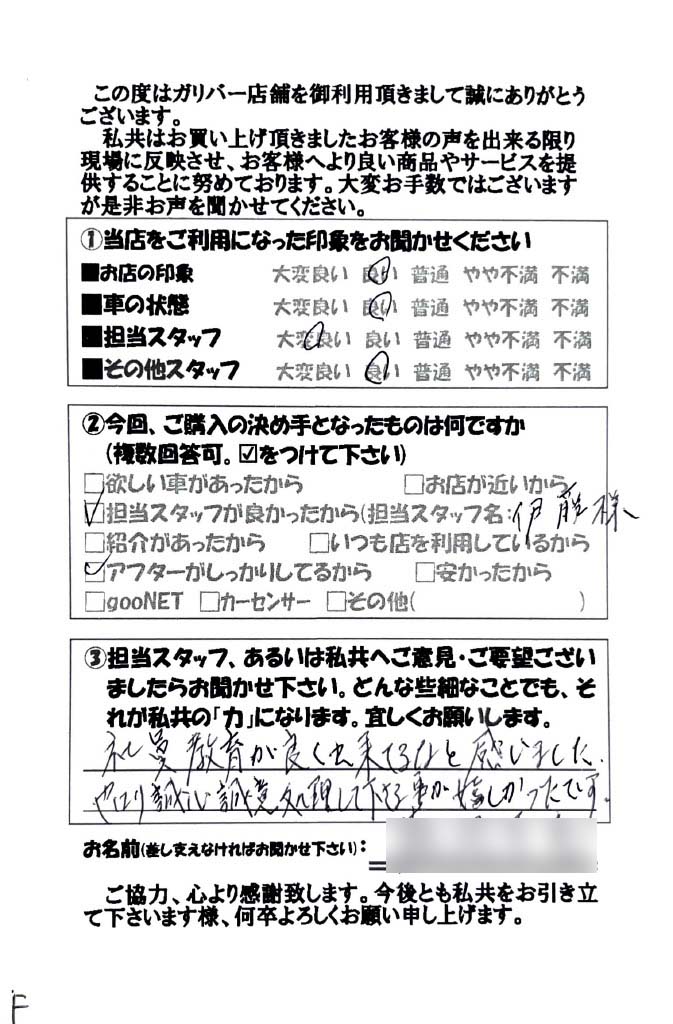 この度はガリバー店舗を御利用頂きまして誠にありがとう
ございます。
私共はお買い上げ頂きましたお客様の声を出来る限り
現場に反映させ、お客様へより良い商品やサービスを提
供することに努めております。大変お手数ではございます
が是非お声を聞かせてください。
①当店をご利用になった印象をお聞かせください
■お店の印象 大変良い 良い 普通 やや不満 不満
■車の状態 大変良い 良い 普通 やや不満 不満
■担当スタッフ 大変良い 良い 普通 やや不満 不満
■その他スタッフ 大変良い 良い 普通 やや不満 不満
②今回、ご購入の決め手となったものは何ですか
(複数回答可。☑をつけて下さい)
□欲しい車があったから □お店が近いから
☑担当スタッフが良かったから(担当スタッフ名:伊藤様
□紹介があったから □いつも店を利用しているから
☑アフターがしっかりしてるから □安かったから
□gooNET □カーセンサー □その他( )
③担当スタッフ、あるいは私共へご意見・ご要望ござい
ましたらお聞かせ下さい。どんな些細なことでも、そ
れが私共の「力」になります。宜しくお願いします。
社員教育が良く出来てるなと感じました.
やはり誠心誠意処理して下さる事が嬉しかったです。
お名前(差し支えなければお聞かせ下さい):
ご協力、心より感謝致します。今後とも私共をお引き立
て下さいます様、何卒よろしくお願い申し上げます。
F